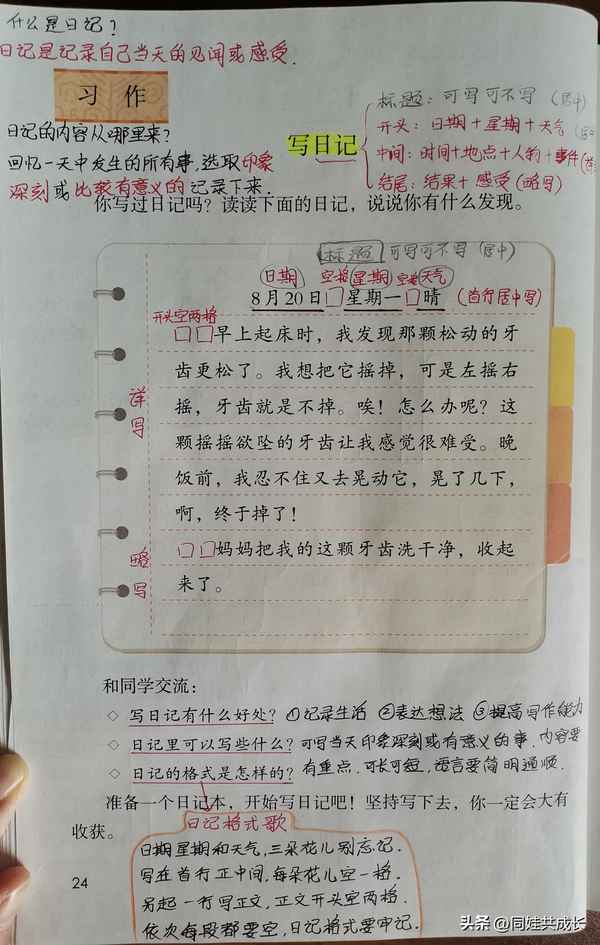 什么是日记?
日记是记录自己当天的见闻或感受.
习 作
日记的内容从哪里来?
回忆一天中发生的所有事,选取印象
深刻或比较有意义的记录下来.
写日记
标题:可写可不写(居中)
开头:日期+星期+天气
中间:时间+地点+人物+事件
结尾:结果+感受(略写)
你写过日记吗?读读下面的日记,说说你有什么发现。
标题 可写可不写(居中)
日期 空格 星期 空格 天气
8月20日□星期一□晴 (首行居中写)
开头空两格
□□早上起床时,我发现那颗松动的牙
齿更松了。我想把它摇掉,可是左摇右
摇,牙齿就是不掉。唉!怎么办呢?这
颗摇摇欲坠的牙齿让我感觉很难受。晚
饭前,我忍不住又去晃动它,晃了几下,
啊,终于掉了!
详写
□□妈妈把我的这颗牙齿洗干净,收起
来了。
略写
和同学交流:
◇ 写日记有什么好处? ①记录生活 ②表达想法 ③提高写作能力
◇ 日记里可以写些什么? 可写当天印象深刻或有意义的事.内容要
◇ 日记的格式是怎样的? 有重点,可长可短,语言要简明通顺.
准备一个日记本,开始写日记吧!坚持写下去,你一定会大有
收获。
日记格式歌
日期星期和天气,三朵花儿别忘记.
写在首行正中间,每朵花儿空一格.
另起一行写正文,正文开头空两格.
依次每段都要空,日记格式要牢记.
24
头条 @同娃共成长